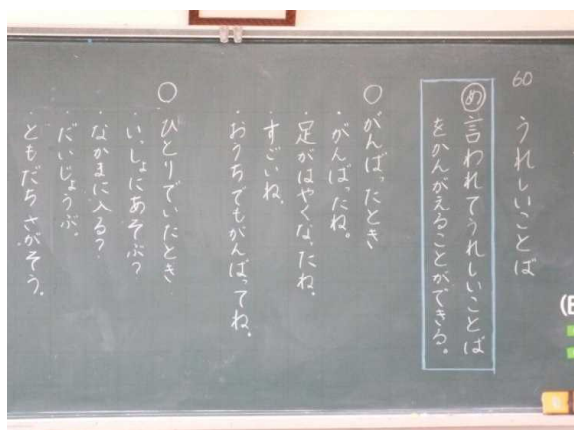 60 うれしいことば
め 言われてうれしいことば
をかんがえることができる。
○がんばったとき
・がんばったね。
・足がはやくなったね。
・すごいね。
・おうちでもがんばってね。
○ひとりでいたとき
・いっしょにあそぶ?
・なかまに入る?
・だいじょうぶ。
・ともだちさがそう。